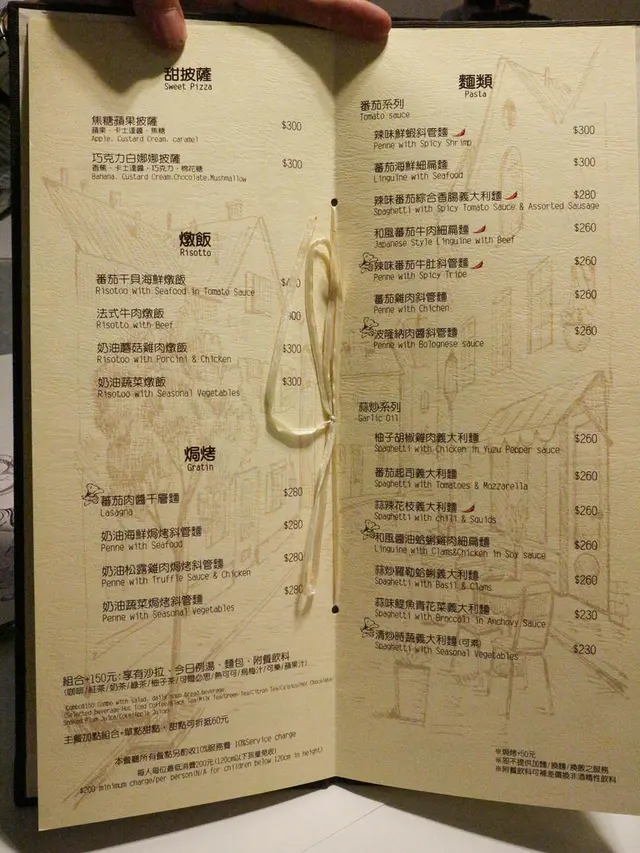 甜披薩
Sweet Pizza
焦糖蘋果披薩 $300
蘋果、卡士達醬、焦糖
Apple. Custard Cream. caramel
巧克力白娜娜披薩 $300
香蕉、卡士達醬、巧克力、棉花糖
Banana. Custard Cream.Chocolate.Mushmallow
燉飯
Risotto
番茄干貝海鮮燉飯
Risotoo with Seafood in Tomato Sauce
法式牛肉燉飯
Risotto with Beef
奶油蘑菇雞肉燉飯 $300
Risotoo with Porcini & Chicken
奶油蔬菜燉飯 $300
Risotoo with Seasonal Vegetables
焗烤
Gratin
番茄肉醬千層麵 $280
Lasagna
奶油海鮮焗烤斜管麵 $280
Penne with Seafood
奶油松露雞肉焗烤斜管麵 $280
Penne with Truffle Sauce & Chicken
奶油蔬菜焗烤斜管麵 $280
Penne with Seasonal Vegetables
組合+150元:享有沙拉、今日例湯、麵包、附餐飲料
(咖啡/紅茶/奶茶/綠茶/柚子茶/可爾必思/熱可可/烏梅汁/可樂/蘋果汁)
Combo$150 Combo with salad, daily soup bread beverage
主餐加點組合+單點甜點，甜點可折抵60元
本餐廳所有餐點另酌收10%服務費 10%Service charge
每人每位最低消費200元(120cm以下孩童免收)
$200 minimum charge/per person(N/A for children below 120cm in height)
麵類
Pasta
番茄系列
Tomato sauce
辣味鮮蝦斜管麵 $300
Penne with Spicy Shrimp
番茄海鮮細扁麵 $300
Linguine with Seafood
辣味番茄綜合香腸義大利麵 $280
Spaghetti with Spicy Tomato Sauce & Assorted Sausage
和風番茄牛肉細扁麵 $260
Japanese Style Linguine with Beef
辣味番茄牛肚斜管麵 $260
Penne with Spicy Tripe
番茄雞肉斜管麵 $260
Penne with Chichen
波隆納肉醬斜管麵 $260
Penne with Bolognese sauce
蒜炒系列
Garlic Oil
柚子胡椒雞肉義大利麵 $260
Spaghetti with Chicken in Yuzu Pepper sauce
番茄起司義大利麵 $260
Spaghetti with Tomatoes & Mozzarella
蒜辣花枝義大利麵 $260
Spaghetti with chili & Squids
和風醬油蛤蜊雞肉細扁麵 $260
Linguine with Clams&Chicken in Soy sauce
蒜炒羅勒蛤蜊義大利麵 $260
Spaghetti with Basil & Clams
蒜味鯷魚青花菜義大利麵 $230
Spaghetti with Broccoli in Anchovy Sauce
清炒時蔬義大利麵(可素) $230
Spaghetti with Seasonal Vegetables
※焗烤+50元
※恕不提供加麵/換麵/換飯之服務
※附餐飲料可補差價換非酒精性飲料